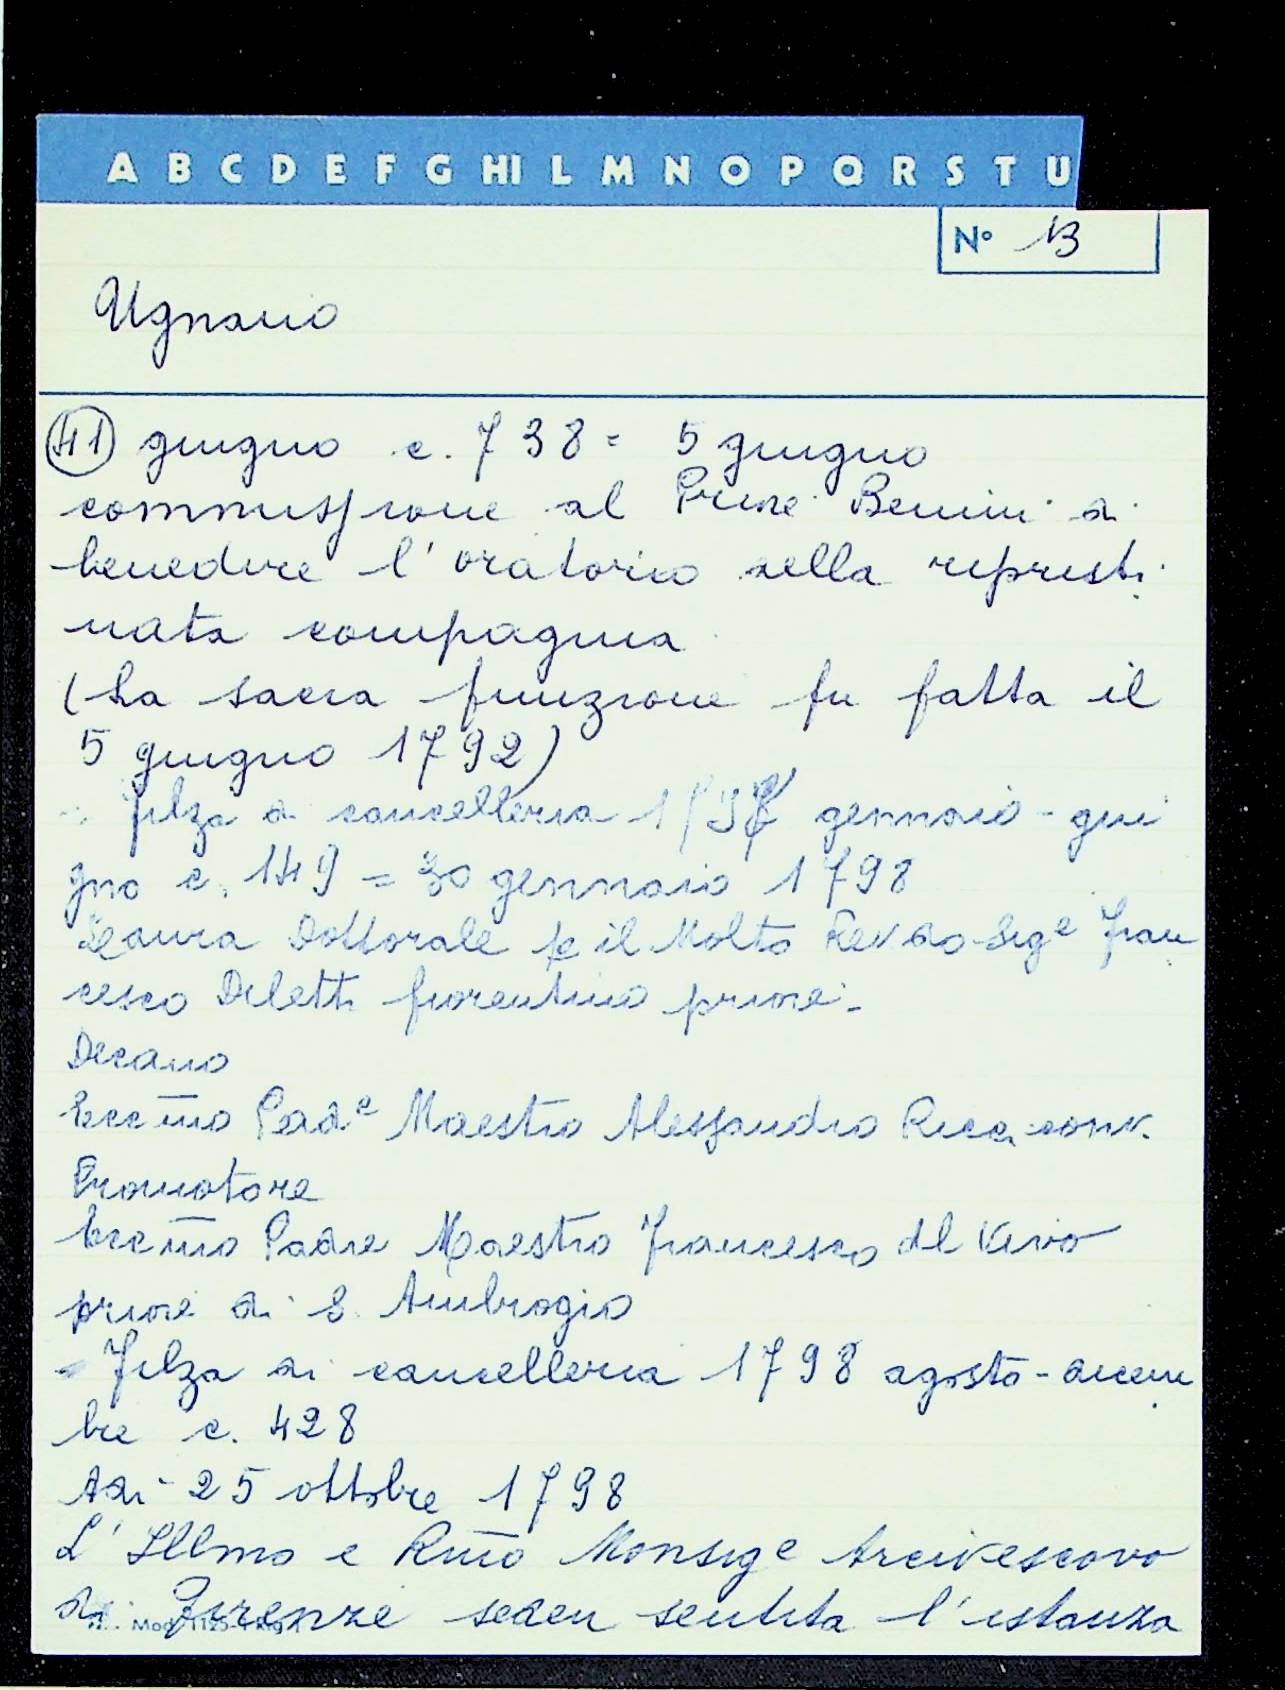 A B C D E F G HI L M N O P Q R S T U
N° 13
Ugnano
41 giugno c. 738 = 5 giugno
commissione al Priore Benini di
benedire l'oratorio della ripristi
nata compagnia
(La sacra funzione fu fatta il
5 giugno 1792)
- Filza di cancelleria gennaio - giu
gno c. 149 = 30 gennaio 1798
Laura Dottorale p il Molto Rev do Sig e Fran
cesco Diletti fiorentino priore
Decano
Ecc mo Pad e Maestro Alessandro Ricci conv.
Promotore
Ecc mo Padre Maestro Francesco del Vivo
priore di S. Ambrogio
= Filza di cancelleria 1798 agosto - dicem
bre c. 428
Adi 25 ottobre 1798
L'Illmo e Rmo Monsig e Arcivescovo
di Firenze seden sentita l'istanza